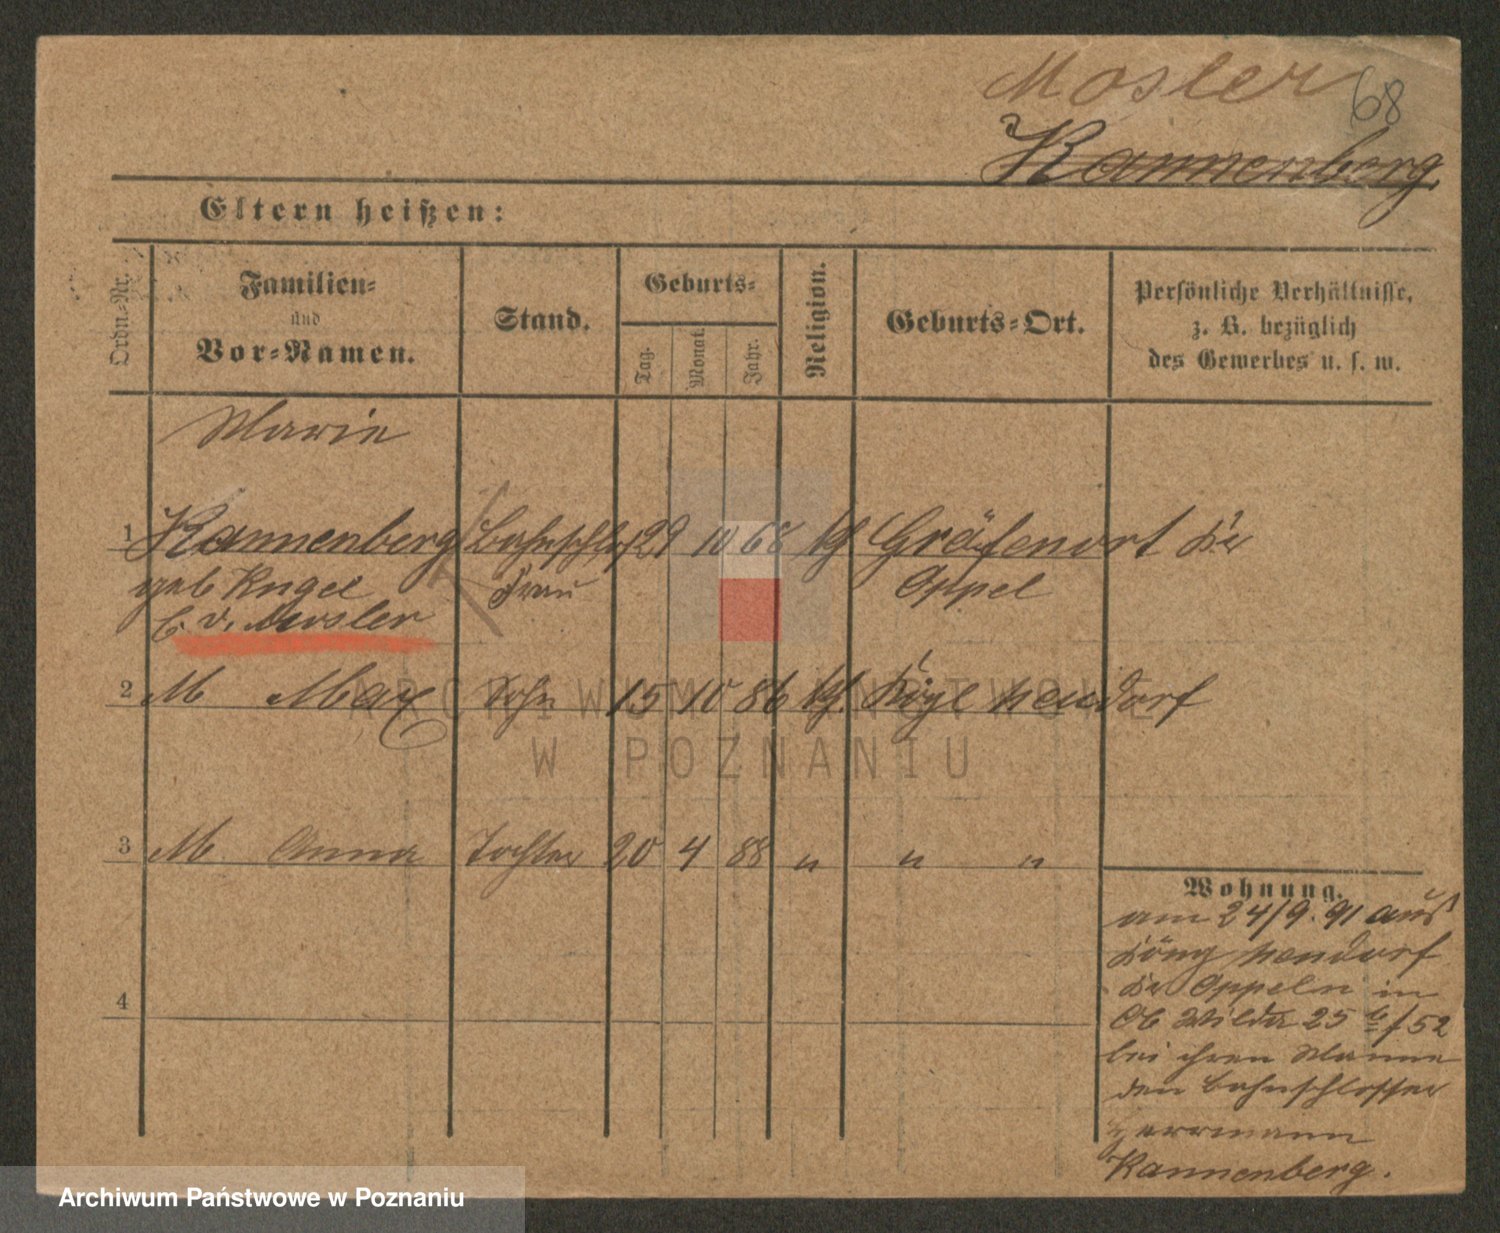 Mosler
68
Kannenberg.
Eltern heißen:
Ordn.-Nr.
Familien-
und
Vor-Namen.
Stand.
Geburts-
Tag.
Monat.
Jahr.
Religion.
Geburts-Ort.
Persönliche Verhältnisse,
z. B. bezüglich
des Gewerbes u. s. w.
Marie
1 Kannenberg 29 10 68 kt Gräfenort Kr
geb Frau Oppel
v. Mosler
2 M Max Sohn 15 10 86 kt neudorf
3 M Anna Tochter 20 4 88 " " "
4
Wohnung.
am 24/9. 91 aus
König neudorf
Kr Oppeln in
Ob Wilda 25 b/52
bei ihren Manne
den Bahnschlosser
Herrmann
Kannenberg.
ARCHIWUM PAŃSTWOWE
W POZNANIU
Archiwum Państwowe w Poznaniu